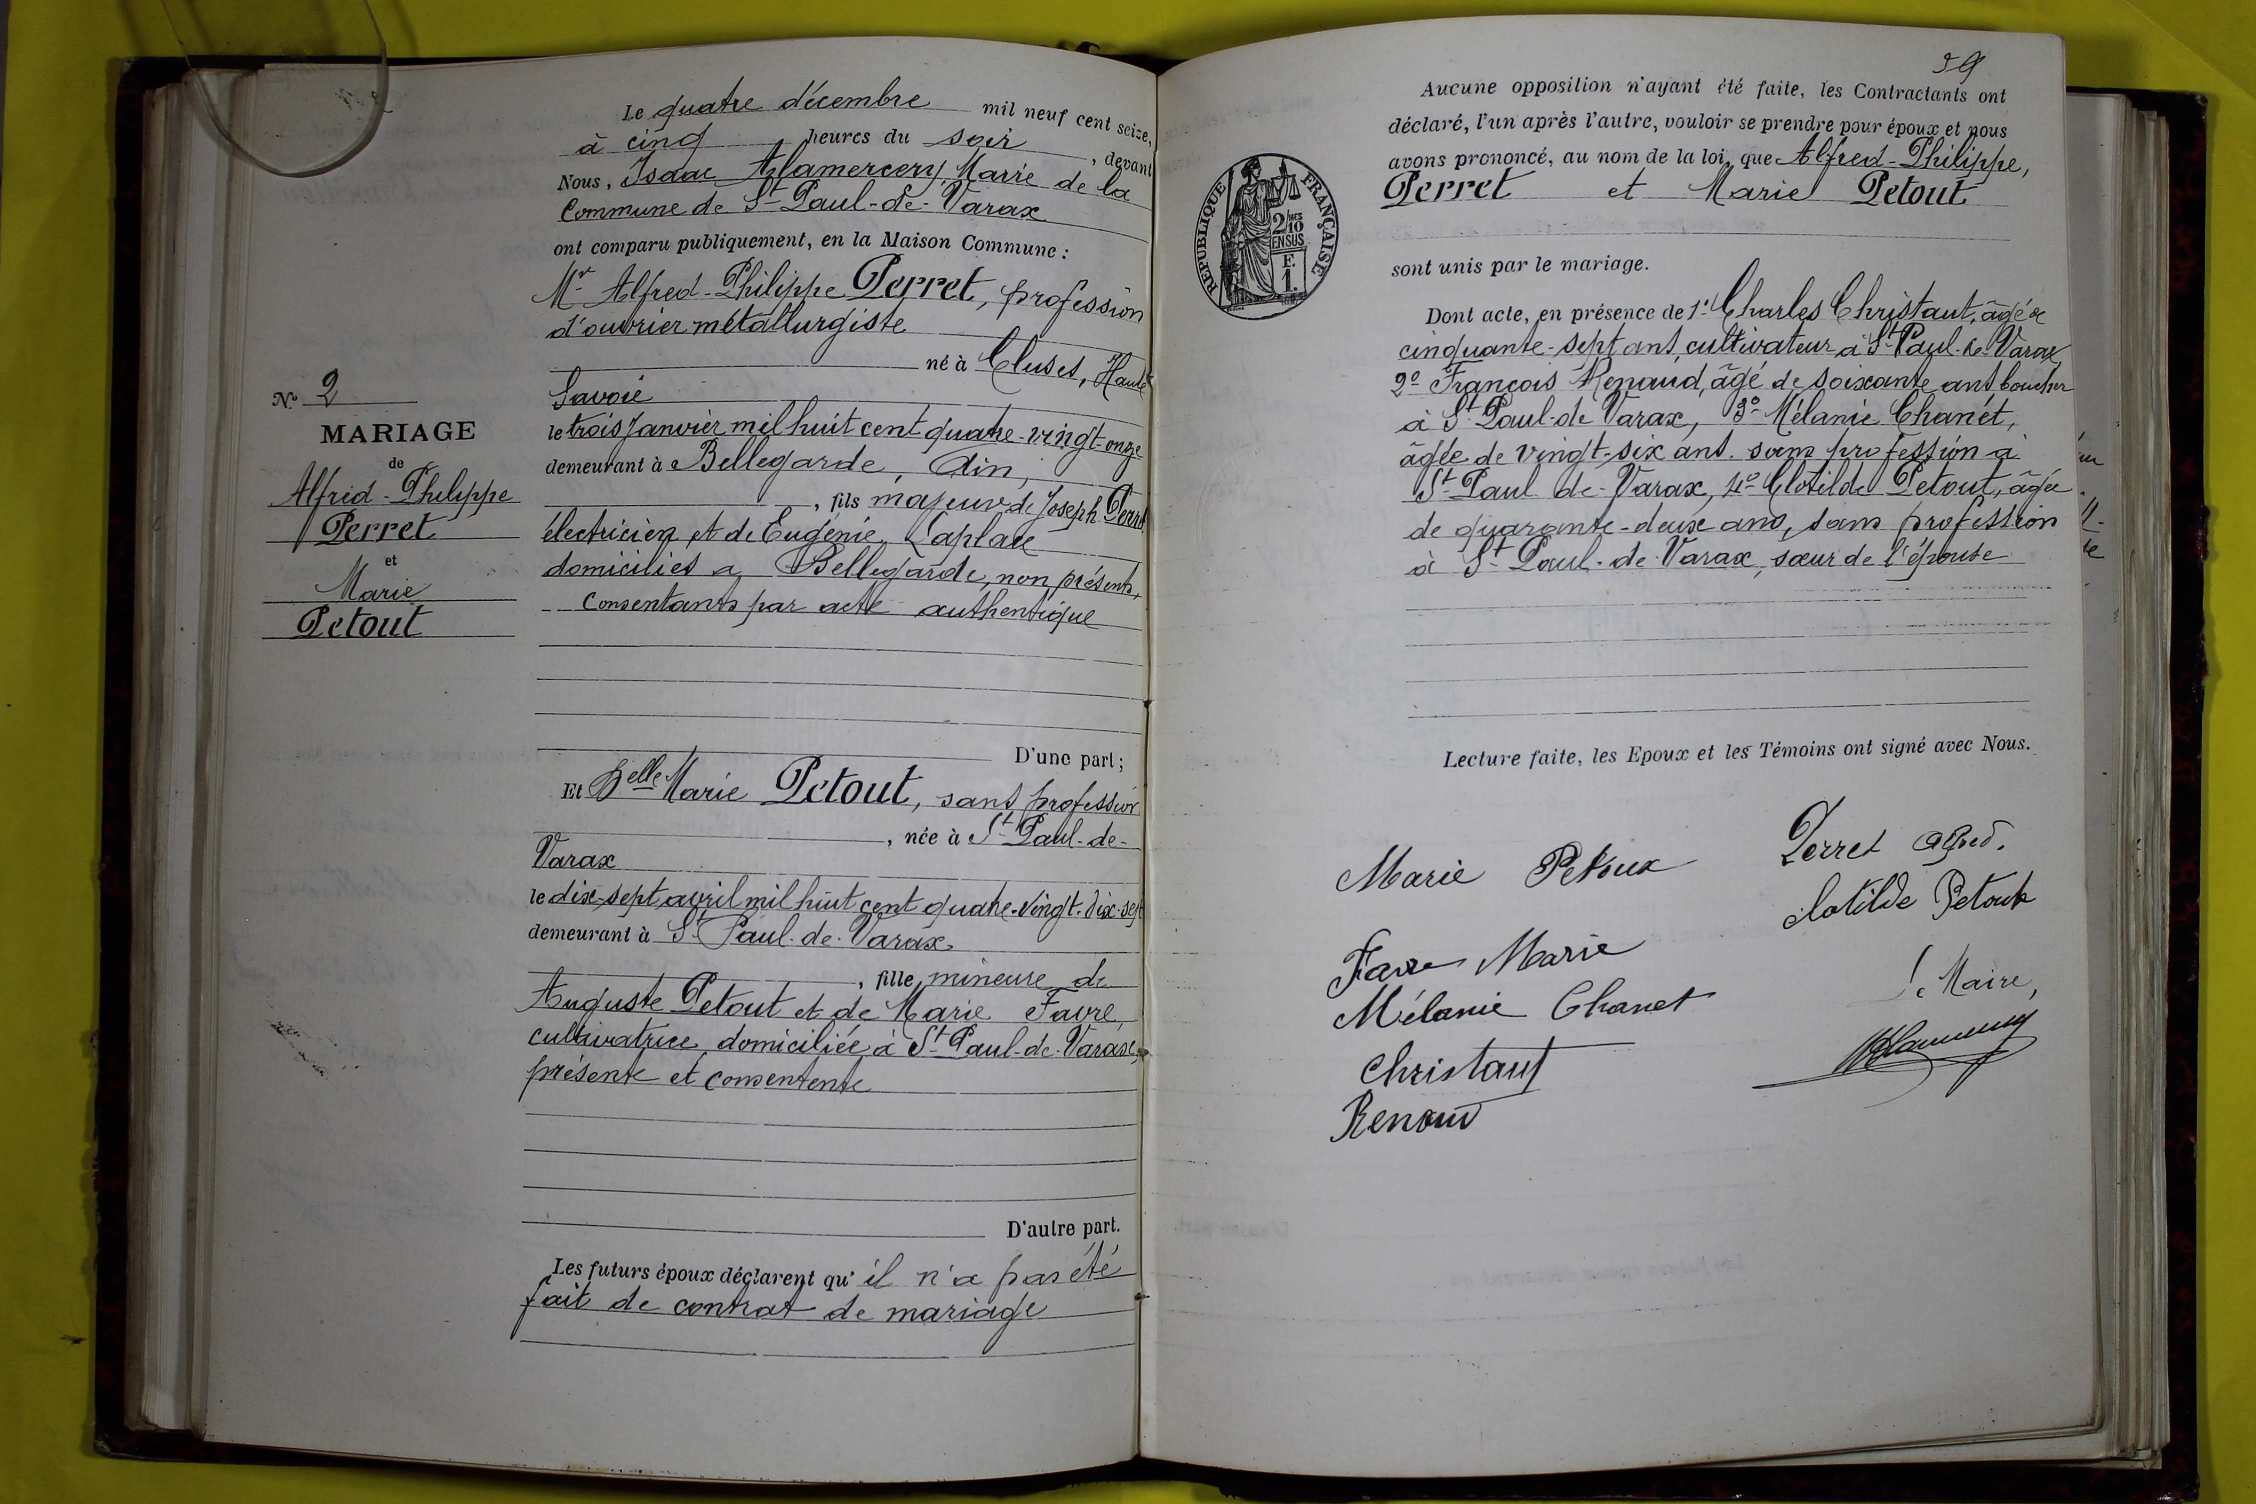 Le quatre décembre mil neuf cent seize,
à cinq heures du soir, devant
Nous, Isaac Alamercery, Maire de la
Commune de St Paul-de-Varax
ont comparu publiquement, en la Maison Commune :
Mr Alfred-Philippe Perret, profession
d'ouvrier métallurgiste
né à Cluses, Haute
Savoie
le trois Janvier mil huit cent quatre-vingt-onze
demeurant à Bellegarde, Ain,
, fils majeur de Joseph Perret
électricien et de Eugénie Laplace
domiciliés à Bellegarde, non présents,
consentants par acte authentique
D'une part ;
Et Delle Marie Petout, sans profession
, née à St Paul-de-
Varax
le dix-sept avril mil huit cent quatre-vingt-dix-sept
demeurant à St Paul-de-Varax
, fille mineure de
Auguste Petout et de Marie Favre,
cultivatrice, domiciliée à St Paul-de-Varax,
présente et consentente
D'autre part.
Les futurs époux déclarent qu'il n'a pas été
fait de contrat de mariage
No 2
MARIAGE
de
Alfred-Philippe
Perret
et
Marie
Petout
39
Aucune opposition n'ayant été faite, les Contractants ont
déclaré, l'un après l'autre, vouloir se prendre pour époux et nous
avons prononcé, au nom de la loi, que Alfred-Philippe,
Perret et Marie Petout
sont unis par le mariage.
Dont acte, en présence de 1o Charles Christaut, âgé de
cinquante-sept ans, cultivateur à St Paul-de-Varax,
2o François Renaud, âgé de soixante ans, boucher
à St Paul-de Varax, 3o Mélanie Chanét,
âgée de vingt-six ans. sans profession à
St Paul de-Varax, 4o Clotilde Petout, âgée
de quarante-deux ans, sans profession
à St Paul-de-Varax, sœur de l'épouse
Lecture faite, les Epoux et les Témoins ont signé avec Nous.
RÉPUBLIQUE FRANÇAISE
2/10 EN SUS
F.
1.
Marie Petoux
Perret Alfred.
Clotilde Petout
Favre Marie
Le Maire,
Mélanie Chanet
Alamercery
Christaut
Renaud